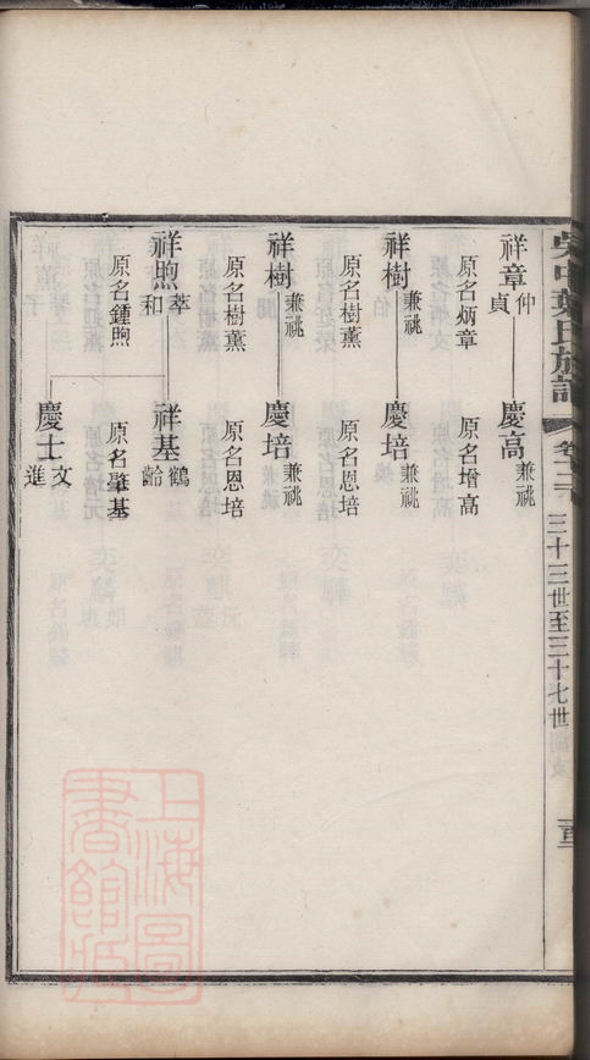 吳中葉氏族譜
卷十六
三十三世至三十七世
祥章 仲貞 慶高 兼祧
原名炳章 原名增高
祥樹 兼祧 慶培 兼祧
原名樹薰 原名恩培
祥樹 兼祧 慶培 兼祧
原名樹薰 原名恩培
祥煦 萃和 祥基 鶴齡
原名鍾煦 原名肇基
慶士 文進
上海圖書館藏